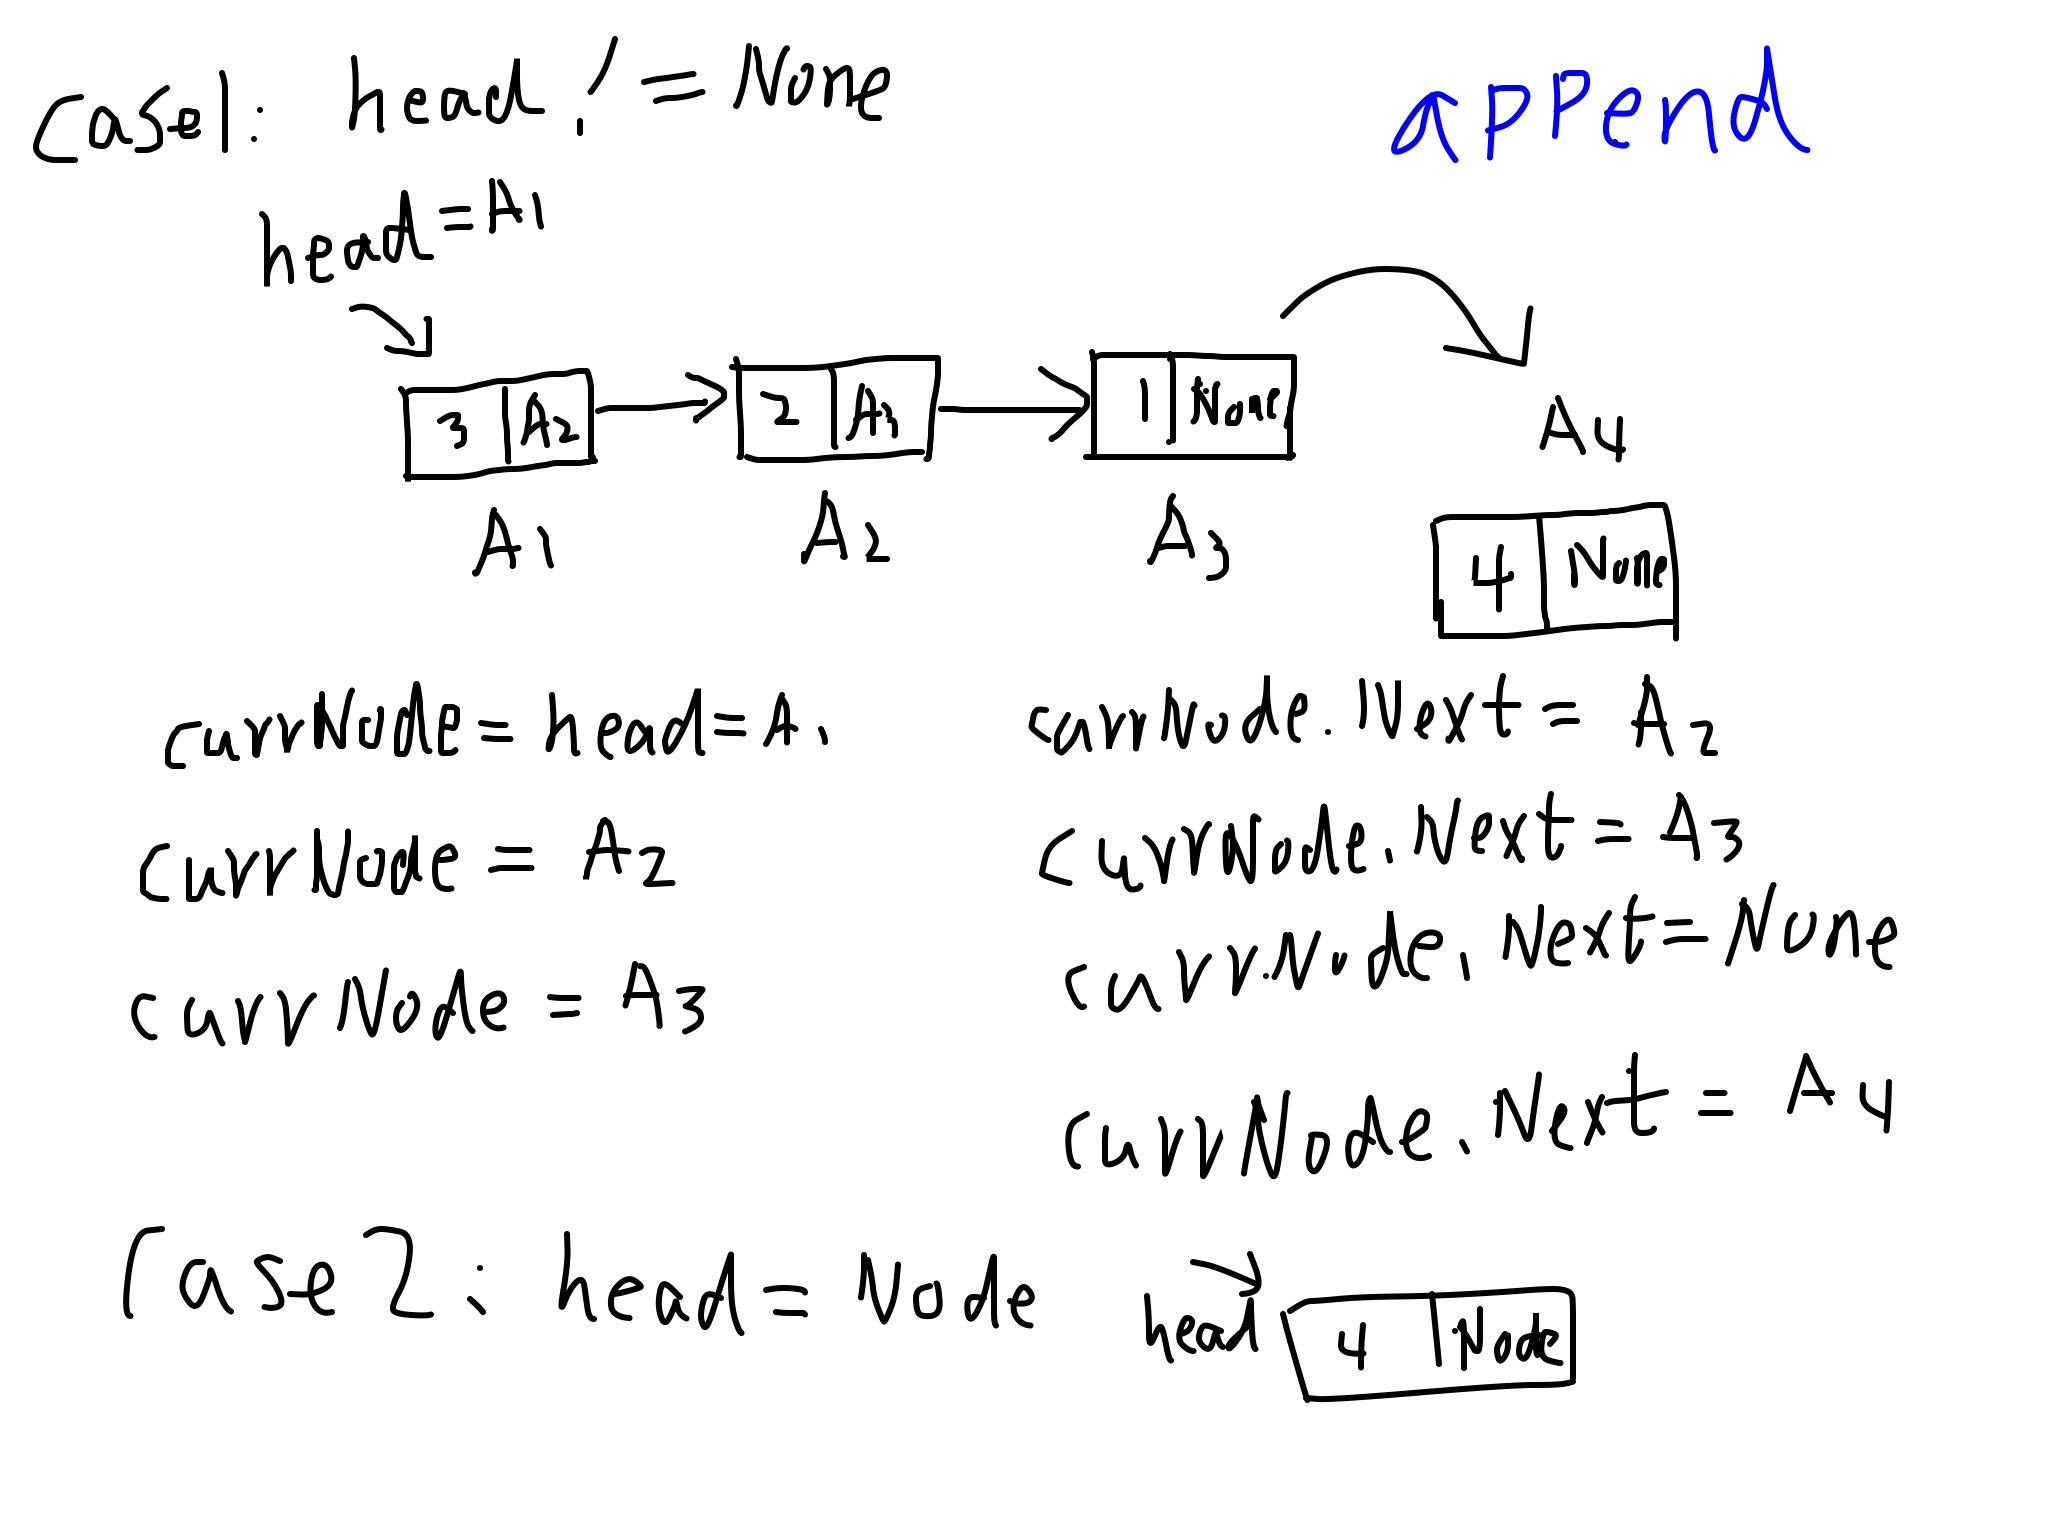 Case1: head != None
append
head = A1
3 A2
2 A3
1 None
A4
A1
A2
A3
4 None
currNode = head = A1
currNode.Next = A2
currNode = A2
currNode.Next = A3
currNode = A3
currNode.Next = None
currNode.Next = A4
Case2: head = Node
head
4 Node